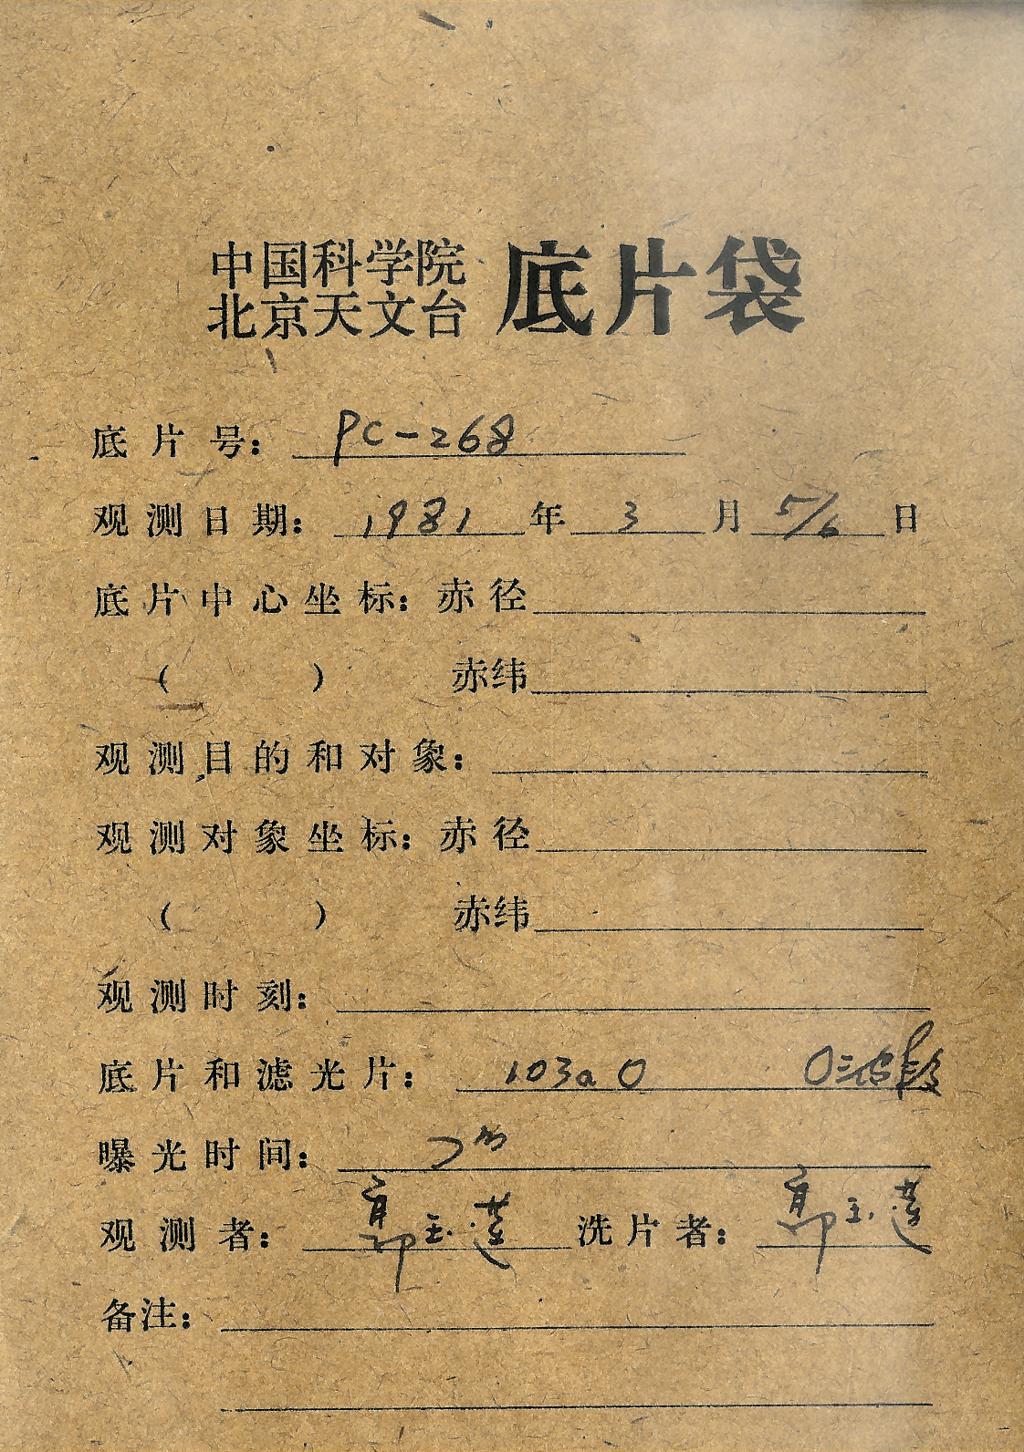 中国科学院
北京天文台 底片袋
底片号： PC-268
观测日期： 1981 年 3 月 5/6 日
底片中心坐标：赤径
（ ） 赤纬
观测目的和对象：
观测对象坐标：赤径
（ ） 赤纬
观测时刻：
底片和滤光片： 103a O O 波段
曝光时间：
观测者： 郭玉莲 洗片者： 郭玉莲
备注：